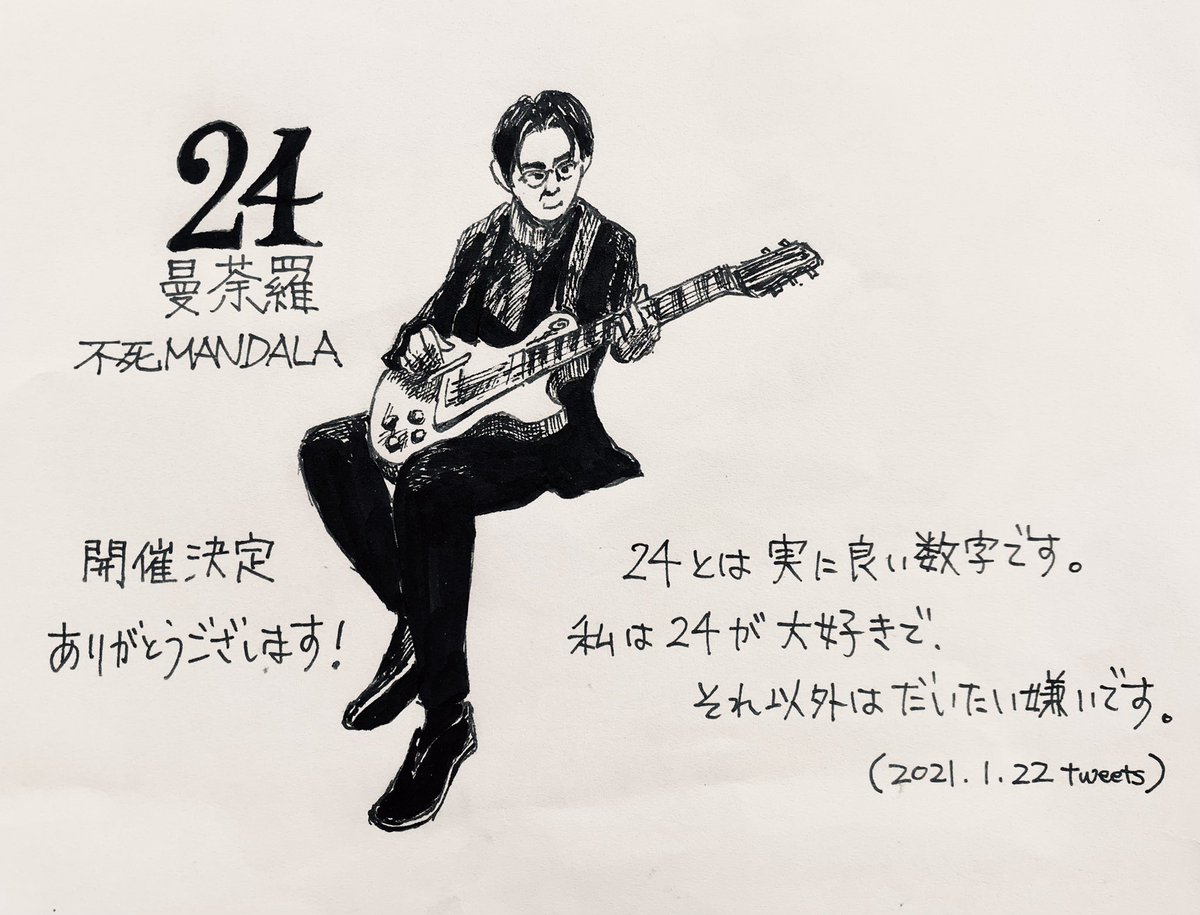 24
曼荼羅
不死MANDALA
開催決定
ありがとうございます!
24とは実に良い数字です。
私は24が大好きで、
それ以外はだいたい嫌いです。
(2021.1.22 tweets)